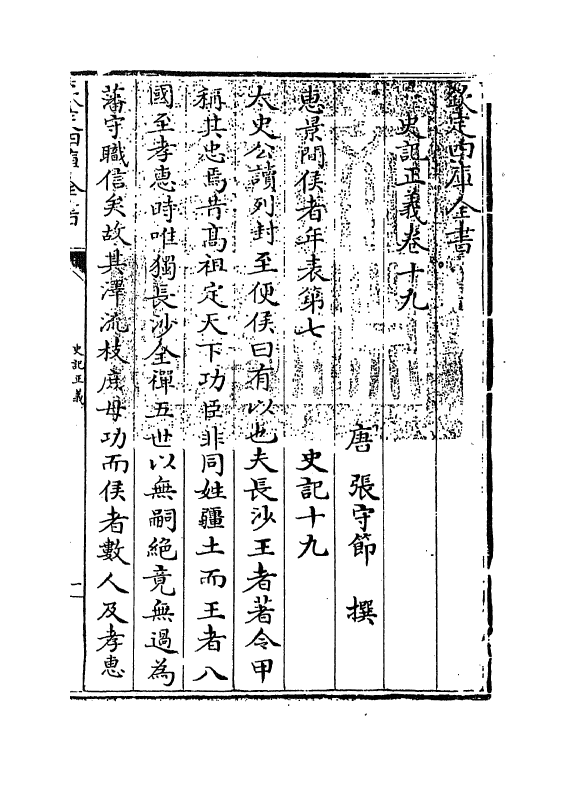 欽定四庫全書
史記正義卷十九
唐 張守節 撰
惠景間侯者年表第七 史記十九
太史公讀列封至便侯曰有以也夫長沙王者著令甲
稱其忠焉昔高祖定天下功臣非同姓疆土而王者八
國至孝惠時唯獨長沙全禪五世以無嗣絕竟無過為
藩守職信矣故其澤流枝庶毋功而侯者數人及孝惠
欽定四庫全書
史記正義
一